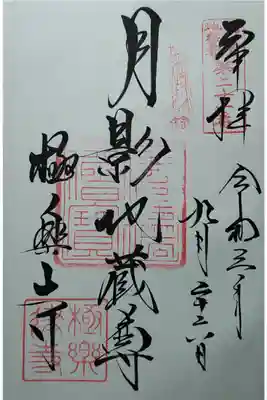 奉拝
令和三年
九月二十六日
月影地蔵尊
極楽寺
極樂律寺